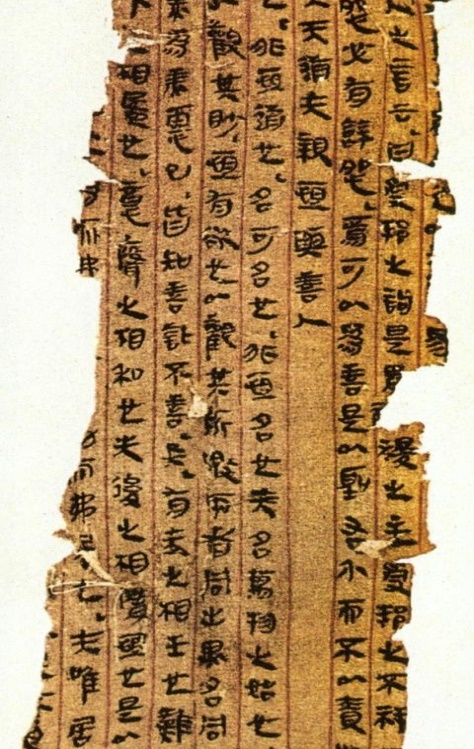 之言云曰受邦之訽是胃稷之主受邦之不祥
怨必有餘怨焉可以爲善是以聖右介而不以責
天道无親恒與善人
也非恒道也名可名也非恒名也无名萬物之始也
觀其眇恒有欲也以觀其所噭兩者同出異名同
爲美惡已皆知善訾不善矣有无之相生也難
相盈也意聲之相和也先後之相隋恒也是以
而弗而弗也夫唯居